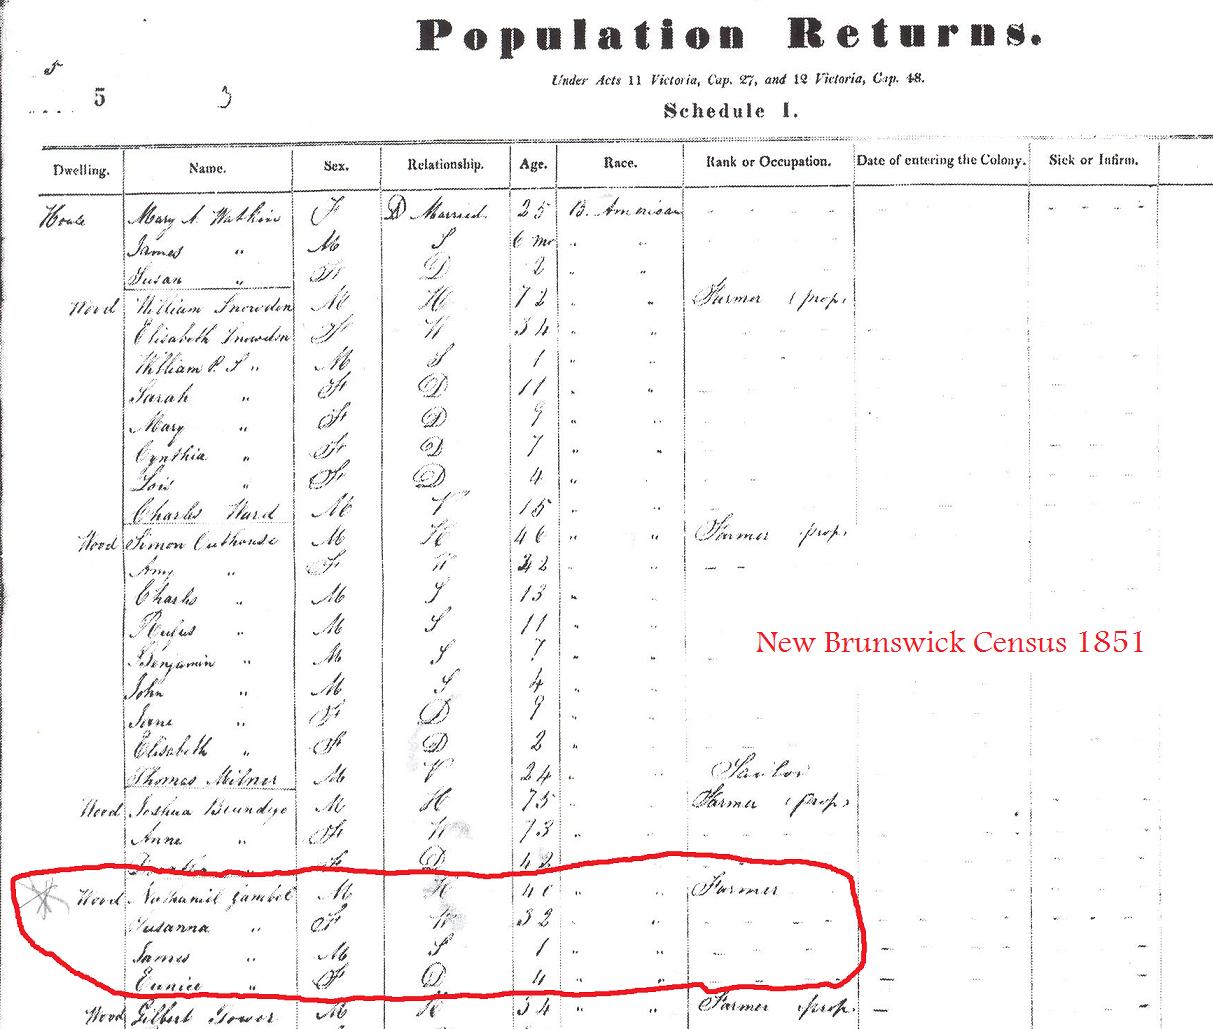 Population Returns.
Under Acts 11 Victoria, Cap. 27, and 12 Victoria, Cap. 48.
5
5 3
Schedule I.
Dwelling. Name. Sex. Relationship. Age. Race. Rank or Occupation. Date of entering the Colony. Sick or Infirm.
Mary A. Watkin F D Married 25 B. American
James " M S 6 mo " "
Susan " F D 2 " "
Wood William Snowden M H 72 " " Farmer (prop)
Elisabeth Snowden F W 34 " "
William P. S " M S 1 " "
Sarah " F D 11 " "
Mary " F D 9 " "
Cynthia " F D 7 " "
Lois " F D 4 "
Charles Ward M V 15 " "
Wood Simon Outhouse M H 46 " " Farmer prop.
Amy " F W "
Charles " M S 13 "
Rufus " M S 11 "
Benjamin " M S 7 "
John " M S 4 "
Jane " F D 9 "
Elisabeth " F D 2 "
Thomas Milner M V 24 " Sailor
Wood Joshua M H 75 " " Farmer (prop)
Anne " F W 73 "
F D 42
Wood Nathaniel Gambel M H 40 " " Farmer
Susanna " F W 32 " "
James " M S 1 "
Eunice " F D 4 " "
Wood Gilbert M H 34 " " Farmer prop.
New Brunswick Census 1851